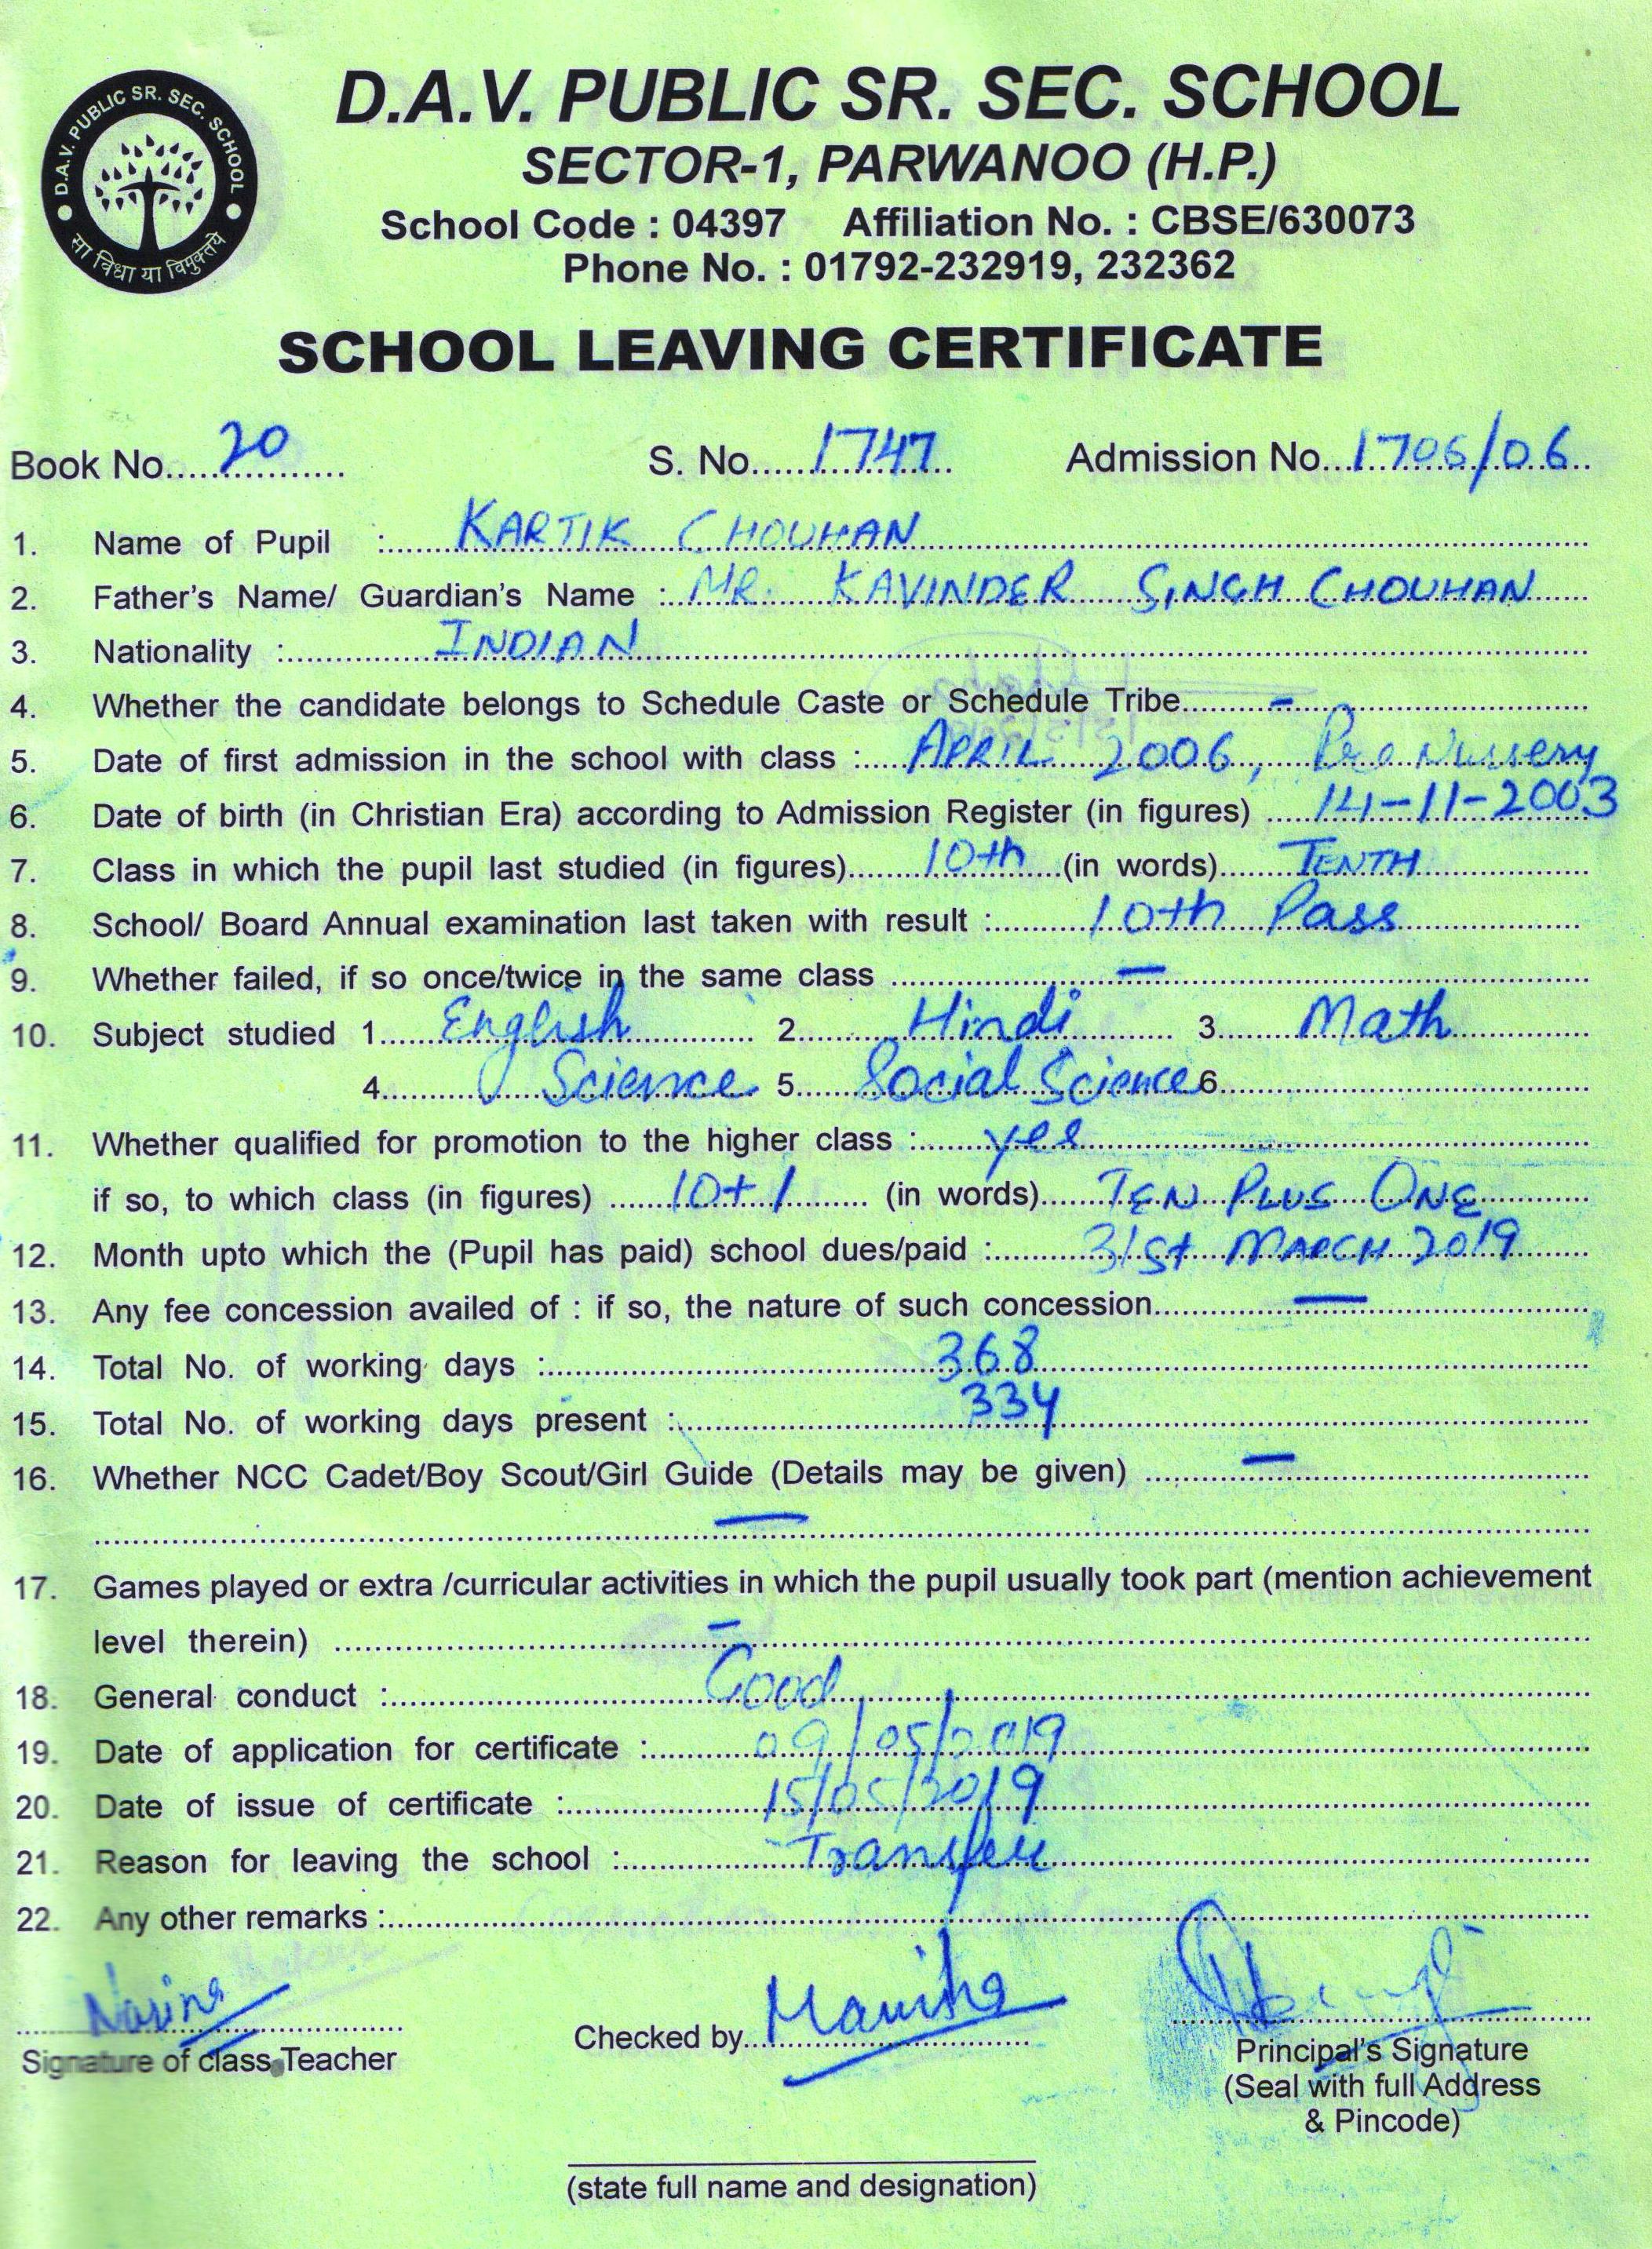 D.A.V. PUBLIC SR. SEC. SCHOOL
D.A.V. PUBLIC SR. SEC. SCHOOL
सा विद्या या विमुक्तये
SECTOR-1, PARWANOO (H.P.)
School Code : 04397 Affiliation No. : CBSE/630073
Phone No. : 01792-232919, 232362
SCHOOL LEAVING CERTIFICATE
Book No. 20 S. No. 1747 Admission No. 1706/06
1. Name of Pupil : KARTIK CHOUHAN
2. Father's Name/ Guardian's Name : MR. KAVINDER SINGH CHOUHAN
3. Nationality : INDIAN
4. Whether the candidate belongs to Schedule Caste or Schedule Tribe -
5. Date of first admission in the school with class : APRIL 2006, Pre Nursery
6. Date of birth (in Christian Era) according to Admission Register (in figures) 14-11-2003
7. Class in which the pupil last studied (in figures) 10th (in words) TENTH
8. School/ Board Annual examination last taken with result : 10th Pass
9. Whether failed, if so once/twice in the same class —
10. Subject studied 1. English 2. Hindi 3. Math
4. Science 5. Social Science 6.
11. Whether qualified for promotion to the higher class : yes
if so, to which class (in figures) 10+1 (in words) TEN PLUS ONE
12. Month upto which the (Pupil has paid) school dues/paid : 31st MARCH 2019
13. Any fee concession availed of : if so, the nature of such concession —
14. Total No. of working days : 368
15. Total No. of working days present : 334
16. Whether NCC Cadet/Boy Scout/Girl Guide (Details may be given) —
—
17. Games played or extra /curricular activities in which the pupil usually took part (mention achievement
level therein) —
18. General conduct : Good
19. Date of application for certificate : 09/05/2019
20. Date of issue of certificate : 15/05/2019
21. Reason for leaving the school : Transfer
22. Any other remarks :
Signature of class Teacher
Checked by Manisha
Principal's Signature
(Seal with full Address
& Pincode)
(state full name and designation)